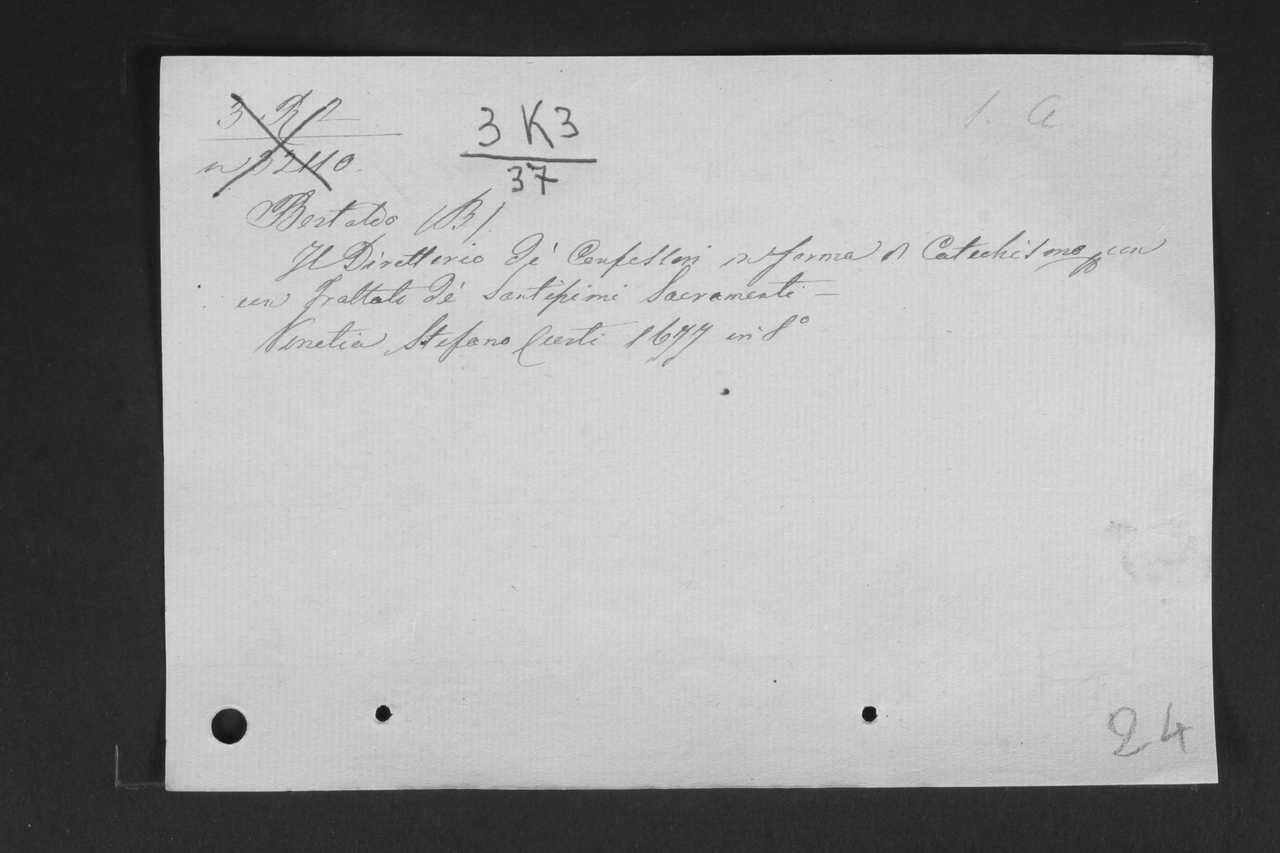 3 R 2
n 32110.
3 K 3
37
1. a
Bertaldo (B).
Il Direttorio de' Confessori in forma di Catechismo, con
un Trattato de' Santissimi Sacramenti —
Venetia Stefano Curti 1677 in 8°
24